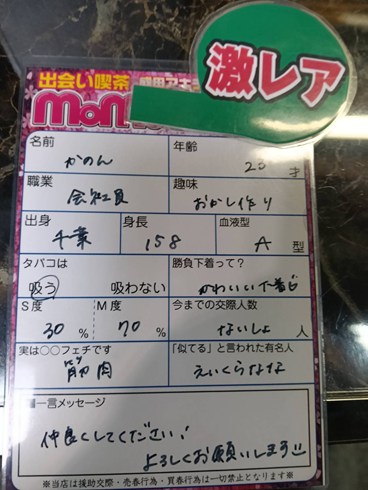 激レア
出会い喫茶
mon
名前
かのん
年齢
23才
職業
会社員
趣味
おかし作り
出身
千葉
身長
158
血液型
A型
タバコは
吸う 吸わない
勝負下着って?
かわいい下着
S度
30%
M度
70%
今までの交際人数
ないしょ 人
実は○○フェチです
筋肉
「似てる」と言われた有名人
えいくらなな
■一言メッセージ
仲良くしてください!
よろしくお願いします
※当店は援助交際・売春行為・買春行為は一切禁止となります※